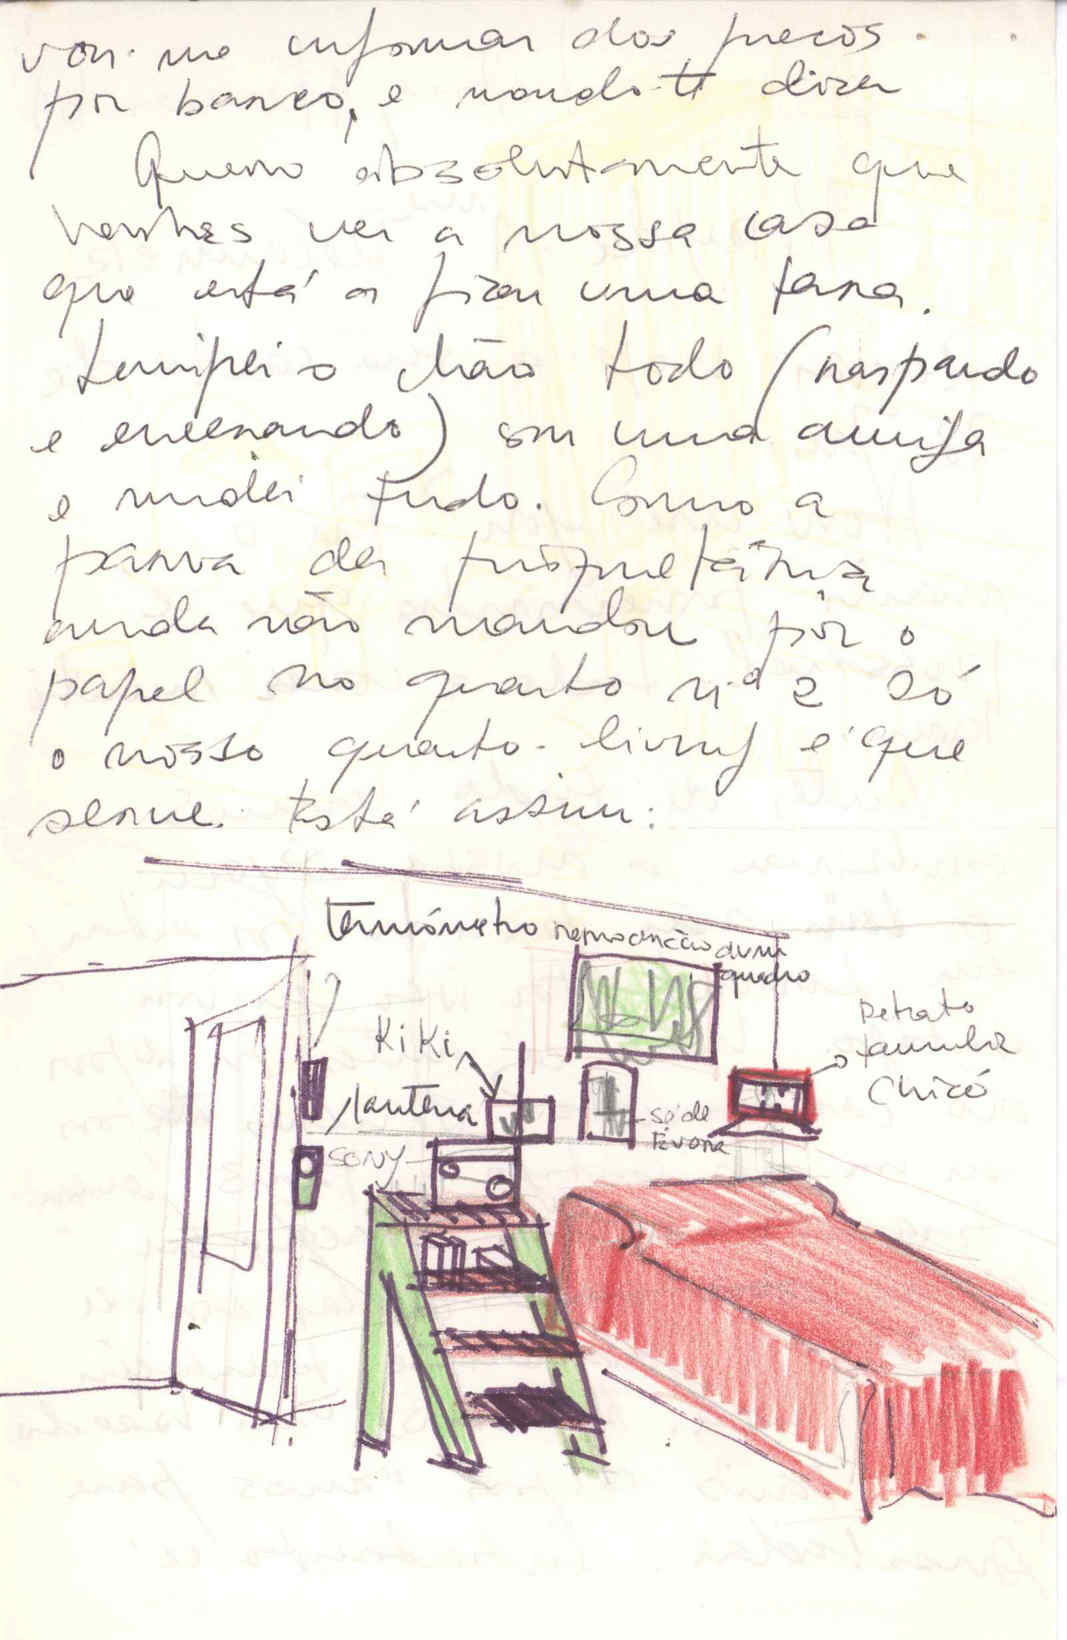 vou-me informar dos preços
por barco, e mando-te dizer
Quero absolutamente que
venhas ver a nossa casa
que está a ficar uma tara.
Limpei o chão todo (raspando
e encerando) com uma amiga
e mudei tudo. Como a
parva da proprietária
ainda não mandou pôr o
papel no quarto nº 2 só
o nosso quarto-living é que
serve. Está assim:
termómetro
reprodução dum
quadro
Retrato
família
Chicó
KiKi
lanterna
Sé de
Évora
SONY